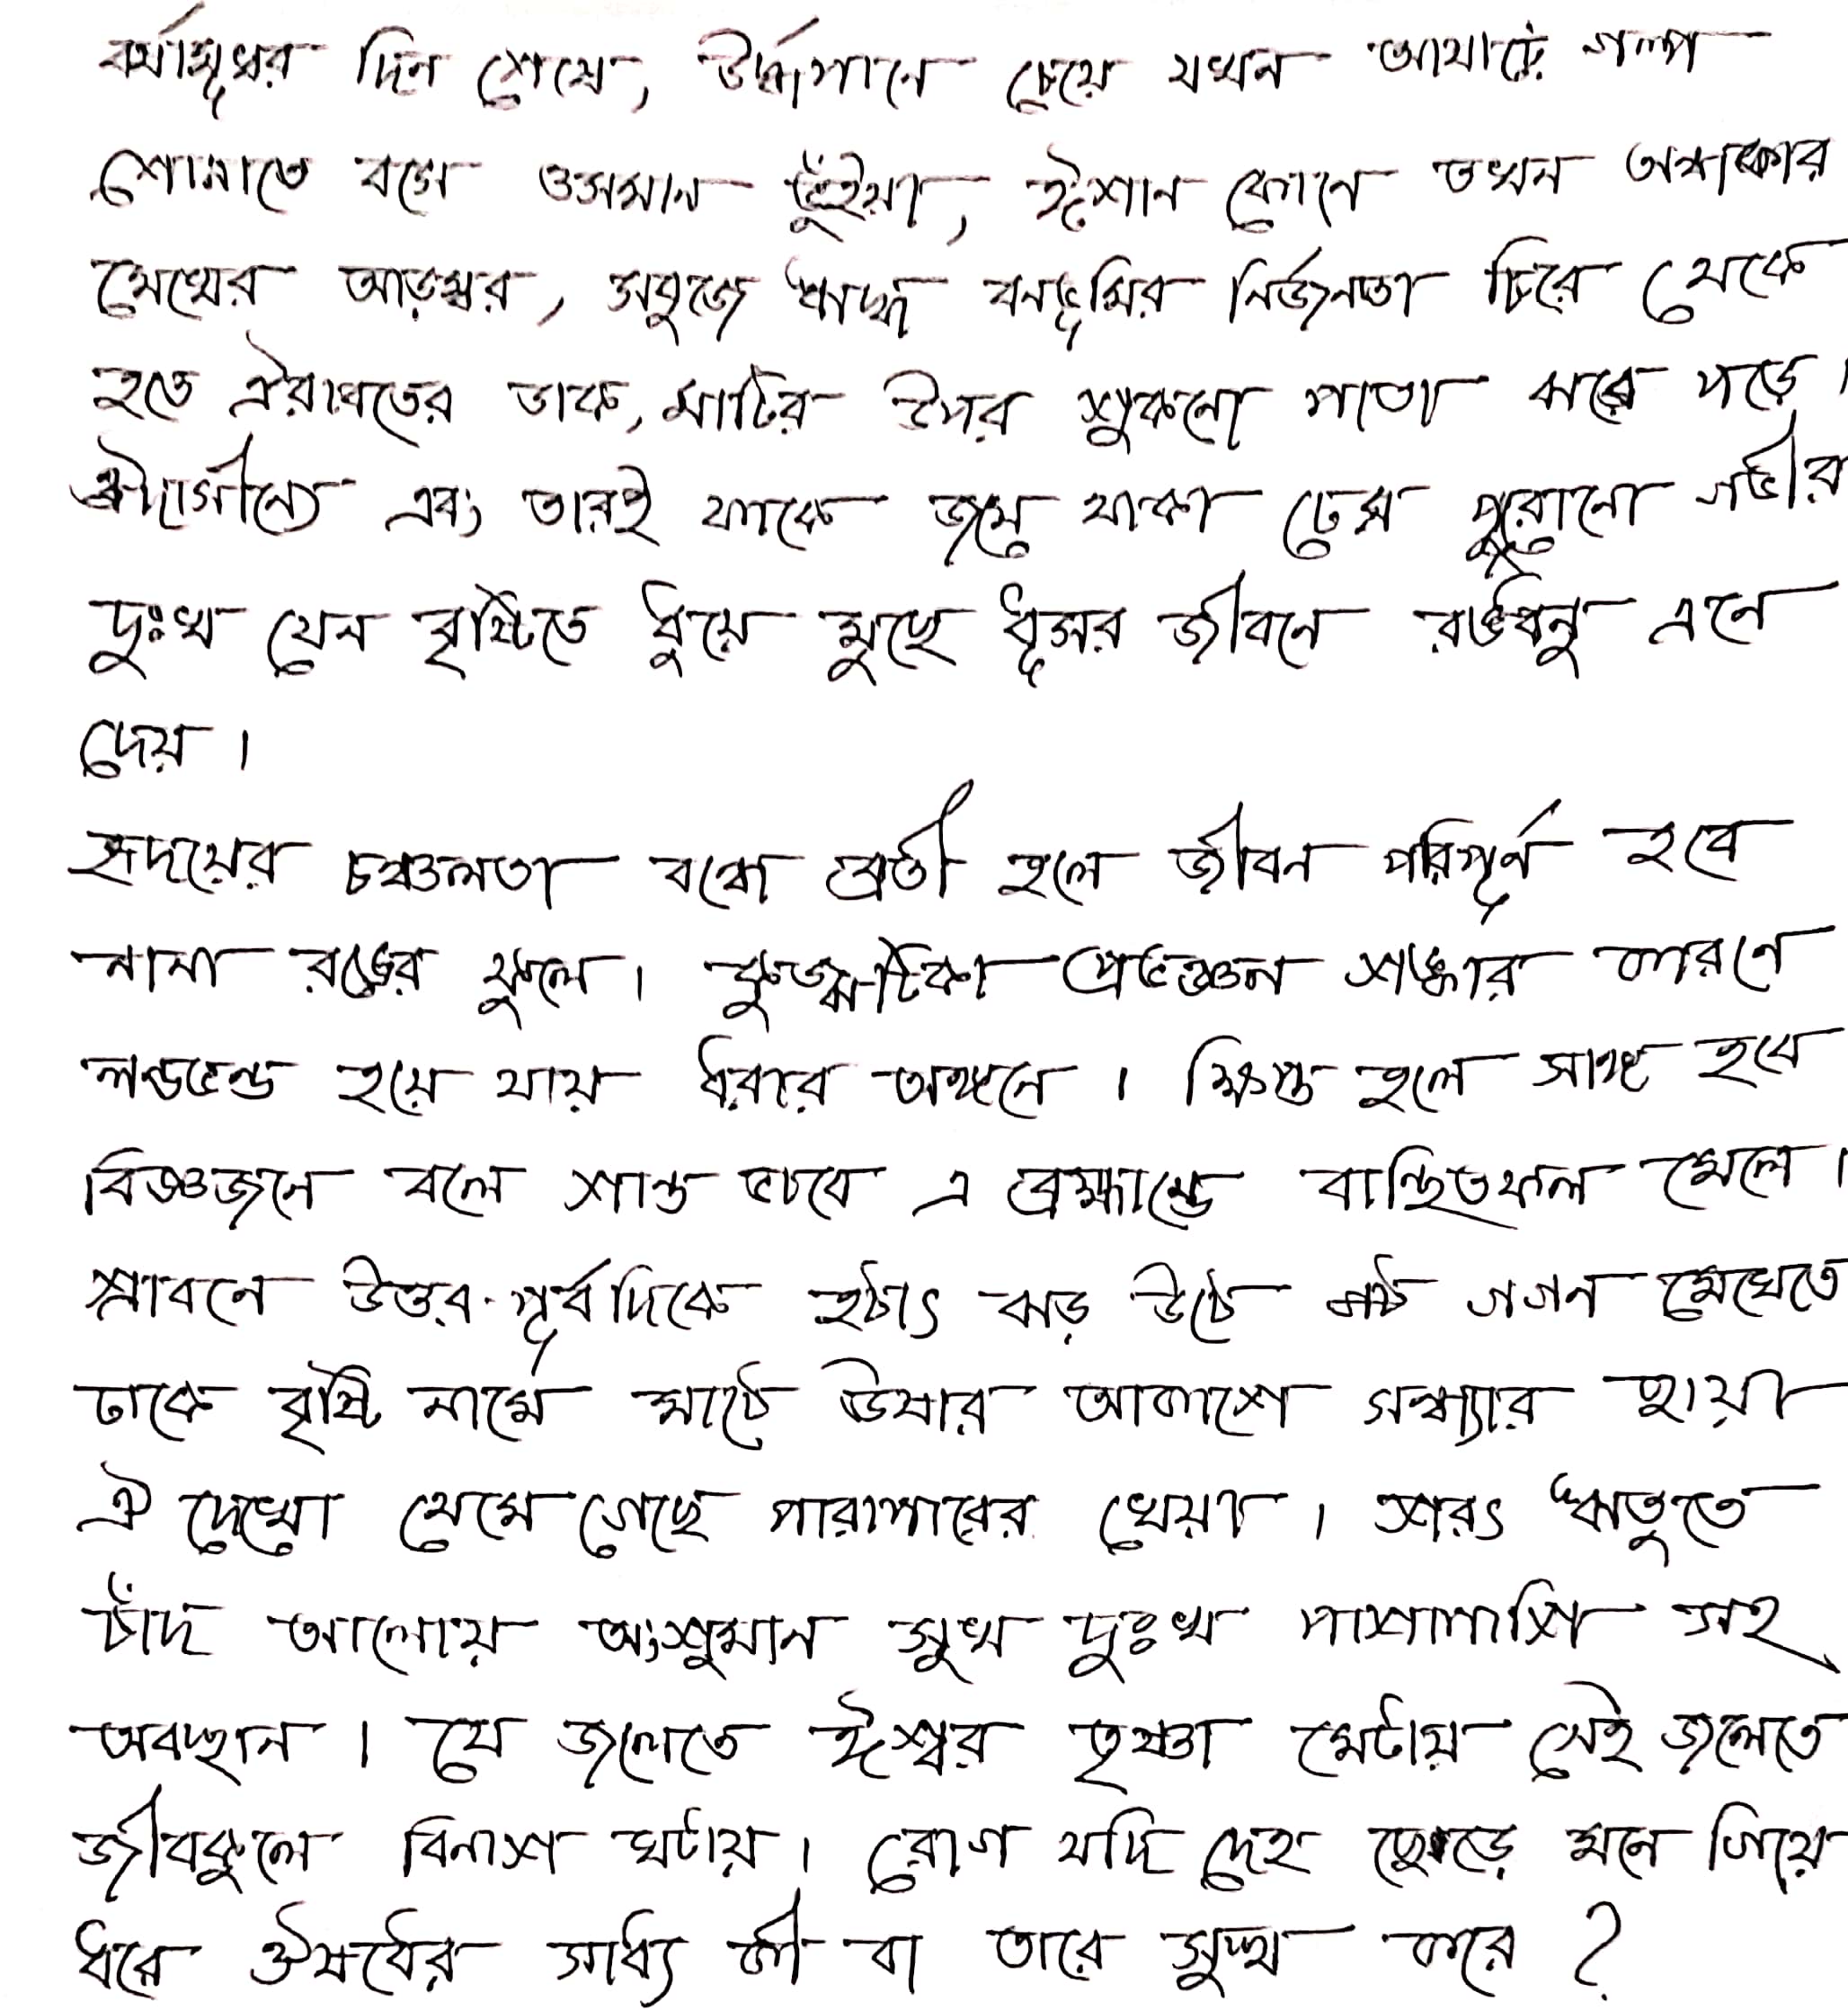 বর্ষামুখর দিন শেষে, উর্দ্ধপানে চেয়ে যখন আষাঢ়ে গল্প
শোনাতে বসে ওসমান ভুঁইয়া, ঈশান কোনে তখন অন্ধকার
মেঘের আড়ম্বর, সবুজে ঋদ্ধ বনভূমির নির্জনতা চিরে থেকে
হতে ঐরাবতের ডাক, মাটির উপর শুকনো পাতা ঝরে পড়ে।
ঔদাসীন্যে এবং তারই ফাকে জমে থাকা ঢের পুরোনো গভীর
দুঃখ যেন বৃষ্টিতে ধুয়ে মুছে ধূসর জীবনে রঙধনু এনে
দেয়।
হৃদয়ের চঞ্চলতা বন্ধে ব্রতী হলে জীবন পরিপূর্ন হবে
নানা রঙের ফুলে। কুজ্ঝটিকা প্রভঞ্জন শঙ্কার কারনে
লন্ডভন্ড হয়ে যায় ধরার অঙ্গনে। ক্ষিপ্ত হলে সাঙ্গ হবে
বিজ্ঞজনে বলে শান্ত হবে এ ব্রহ্মান্ডে বাঞ্ছিতফল মেলে।
শ্রাবনে উত্তর-পূর্বদিকে হঠাৎ ঝড় উঠে গগন মেঘেতে
ঢাকে বৃষ্টি নামে মাঠে ঊষার আকাশে সন্ধ্যার ছায়া
ঐ দেখো থেমে গেছে পারাপারের খেয়া। শরৎ ঋতুতে
চাঁদ আলোয় অংশুমান সুখ দুঃখ পাশাপাশি সহ
অবস্থান। যে জলেতে ঈশ্বর তৃষ্ণা মেটায় সেই জলেতে
জীবকুলে বিনাশ ঘটায়। রোগ যদি দেহ ছেড়ে মনে গিয়ে
ধরে ঔষধের সাধ্য কী বা তারে সুস্থ করে?